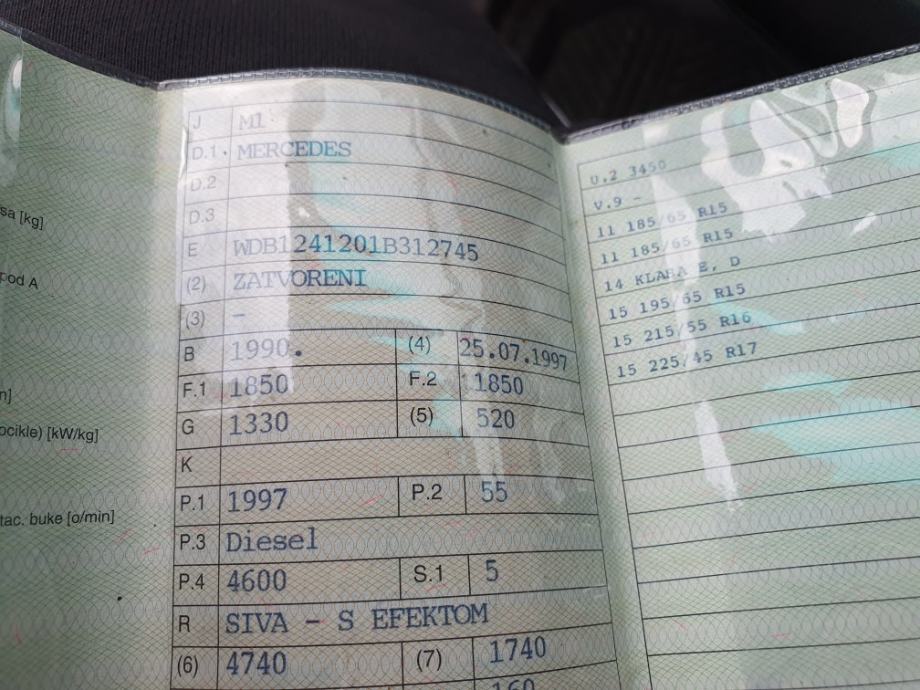 sa [kg]
pod A
n]
ocikle) [kW/kg]
tac. buke [o/min]
J M1
D.1. MERCEDES
D.2
D.3
E WDB1241201B312745
(2) ZATVORENI
(3) -
B 1990. (4) 25.07.1997
F.1 1850 F.2 1850
G 1330 (5) 520
K
P.1 1997 P.2 55
P.3 Diesel
P.4 4600 S.1 5
R SIVA - S EFEKTOM
(6) 4740 (7) 1740
160
U.2 3450
V.9 -
11 185/65 R15
11 185/65 R15
14 KLASA E, D
15 195/65 R15
15 215/55 R16
15 225/45 R17